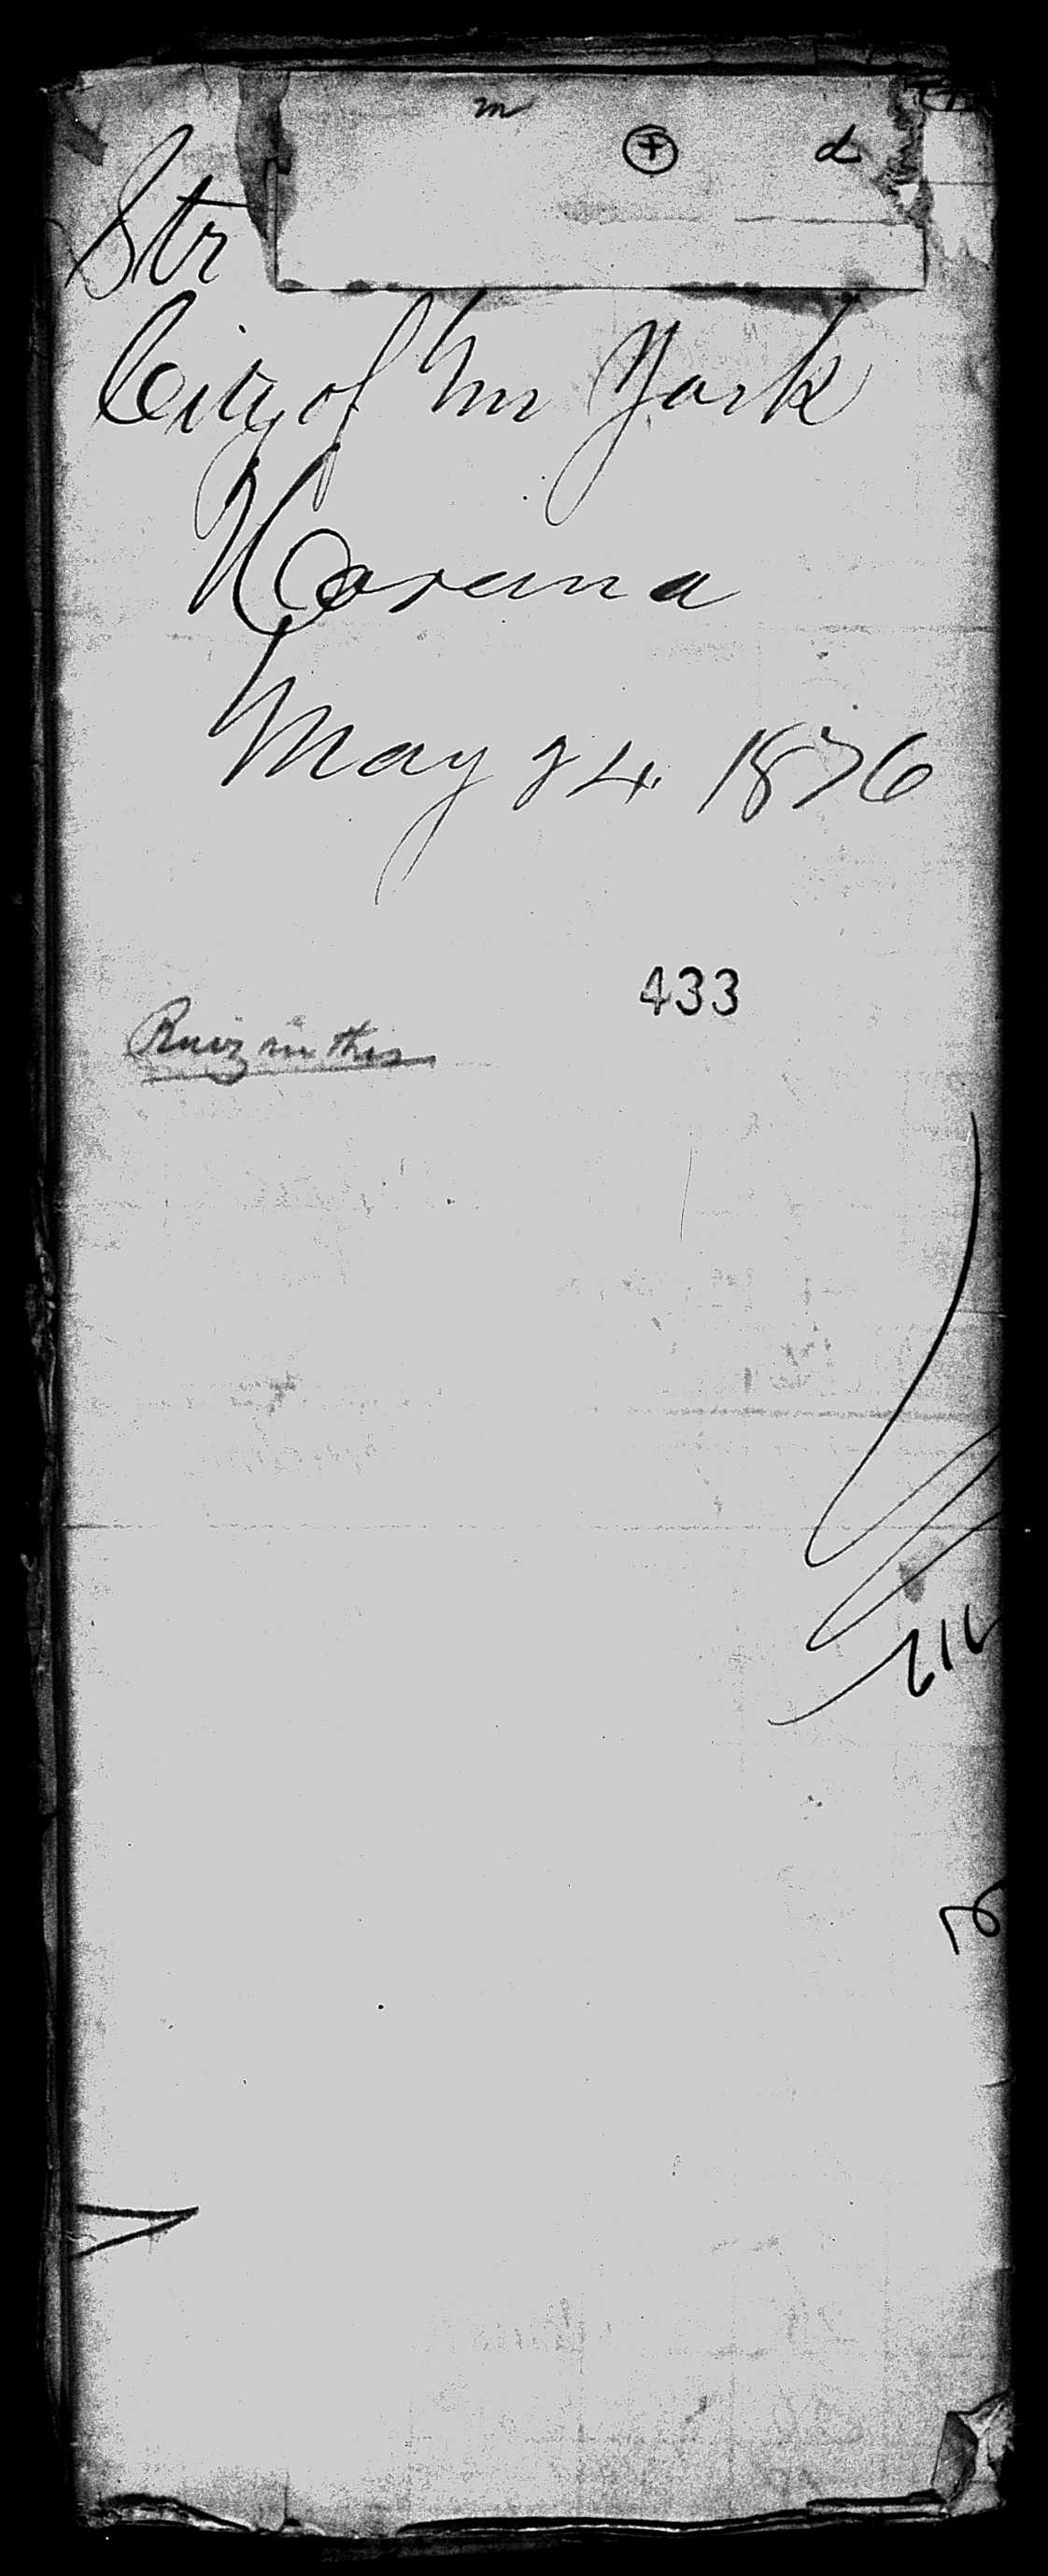 m
d
Str
City of New York
Havana
May 24 1876
433
Ruiz in this